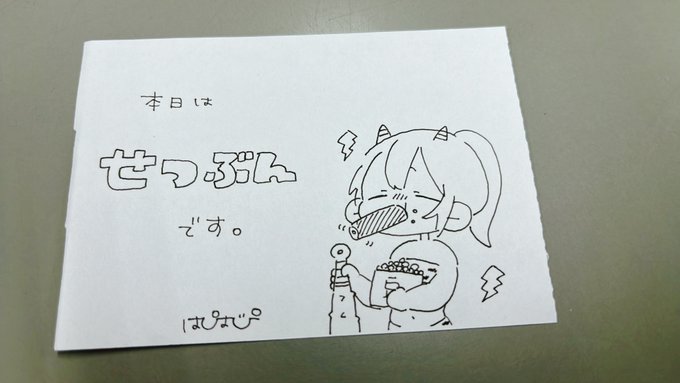 本日は
せつぶん
です。
はぴはぴ